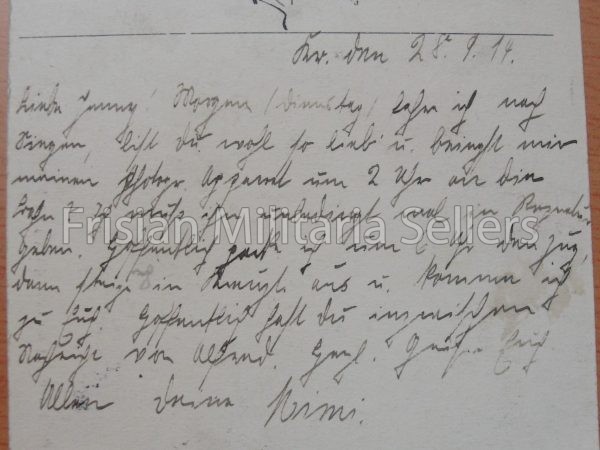 Kr. den 28. 9. 14.
Liebe Jenny! Morgen (Dienstag) fahre ich nach
Siegen, bist Du wohl so lieb u. bringst mir
meinen Photogr. Apparat um 2 Uhr an die
Bahn? Ich muß ihn unbedingt mal in Reparatur
geben. Hoffentlich packe ich um 6 Uhr den Zug,
dann steige in aus u. komme ich
zu Euch. Hoffentlich hast Du inzwischen
Nachricht von Alfred. Herzl. Grüße Euch
Allen Deine Mimi.
Frisian Militaria Sellers